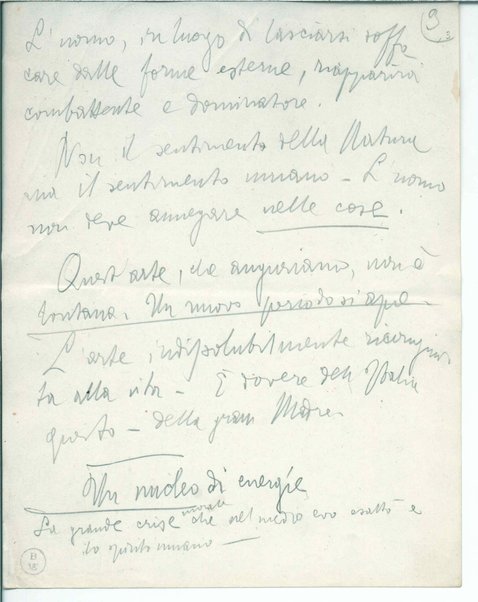 3
L'uomo, in luogo di lasciarsi soffo
care dalle forme esterne, riapparirà
combattente e dominatore.
Non il sentimento della Natura
ma il sentimento umano – L'uomo
non deve annegare nelle cose.
Quest'arte, che auguriamo, non è
lontana. Un nuovo periodo si apre.
L'arte indissolubilmente ricongiun
ta alla vita – È dovere dell'Italia
questo – della gran Madre.
Un nucleo di energie
La grande crise morale che nel medio evo esaltò e
lo spirito umano –